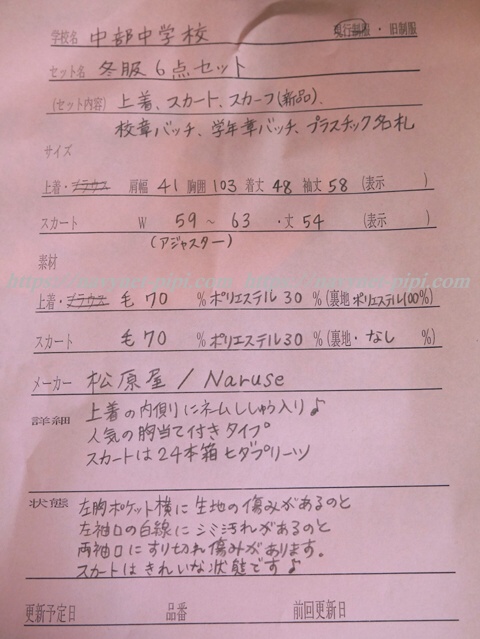 学校名 中部中学校 現行制服・旧制服
セット名 冬服6点セット
(セット内容) 上着、スカート、スカーフ(新品)、
校章バッチ、学年章バッチ、プラスチック名札
サイズ
上着・ブラウス 肩幅 41 胸囲 103 着丈 48 袖丈 58 (表示 )
スカート W 59 ～ 63 ・丈 54 (表示 )
(アジャスター)
素材
上着・ブラウス 毛 70 % ポリエステル 30 % (裏地 ポリエステル100%)
スカート 毛 70 % ポリエステル 30 % (裏地・なし %)
メーカー 松原屋 / Naruse
詳細 上着の内側にネームししゅう入り♪
人気の胸当て付きタイプ
スカートは24本箱ヒダプリーツ
状態 左胸ポケット横に生地の傷みがあるのと
左袖口の白線にシミ汚れがあるのと
両袖口にすり切れ傷みがあります。
スカートはきれいな状態です♪
更新予定日 品番 前回更新日